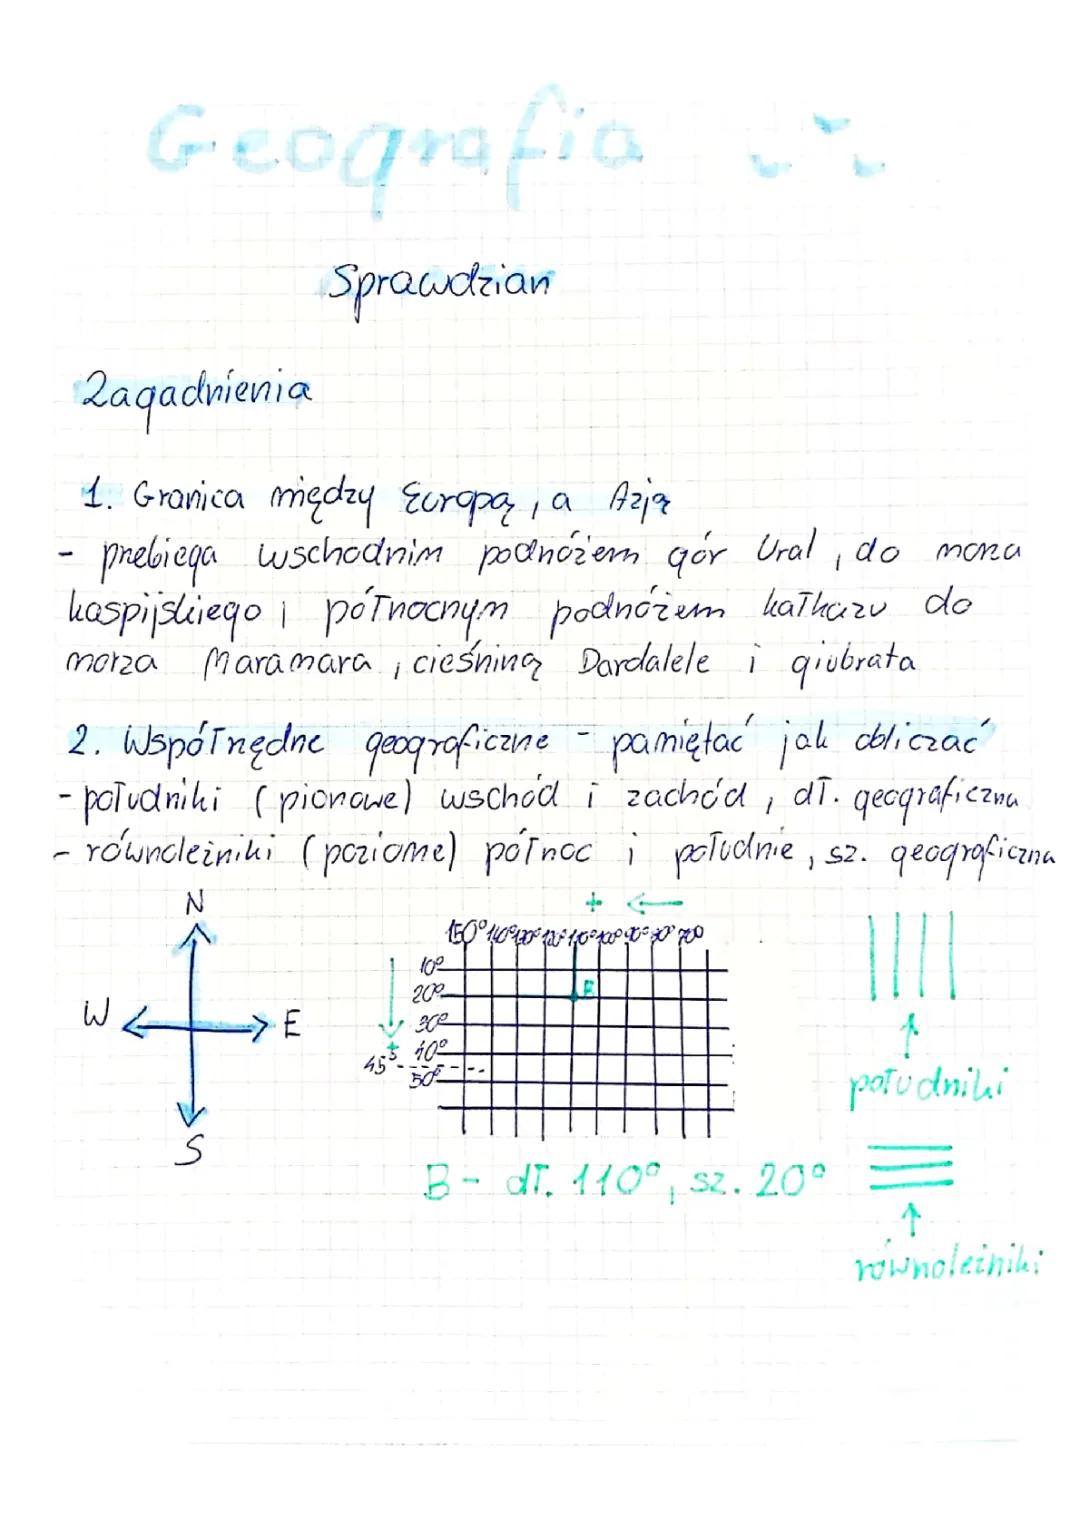 Geografia
Sprawdzian
Zagadnienia
1. Granica między Europą, a Azją
- przebiega wschodnim podnóżem gór Ural, do morza
kaspijskiego, północnym podnóżem kałkazu do
morza Maramara, cieśniną Dardalele i giubrata
2. Współrzędne geograficzne - pamiętać jak obliczać
- południki (pionowe) wschód i zachód, dł. geograficzna
- równoleżniki (poziome) północ i południe, sz. geograficzna
N
W E
S
+ ←
150° 140° 130° 120° 110° 100° 90° 80° 70°
10°
20° B
30°
40°
45°
50°
południki
B - dł. 110°, sz. 20°
równoleżniki